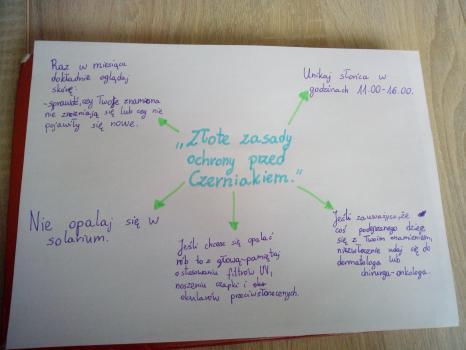 Raz w miesiącu
dokładnie oglądaj
skórę.
-sprawdź, czy Twoje znamiona
nie zmieniają się lub czy nie
pojawiły się nowe.
Unikaj słońca w
godzinach 11.00-16.00.
"Złote zasady
ochrony przed
Czerniakiem."
Nie opalaj się w
solarium.
Jeśli chcesz się opalać
rób to z głową-pamiętaj
o stosowaniu filtrów UV,
noszeniu czapki i
okularów przeciwsłonecznych.
Jeśli zauważysz, że
coś podejrzanego dzieje
się z Twoim znamieniem,
niezwłocznie udaj się do
dermatologa lub
chirurga-onkologa.